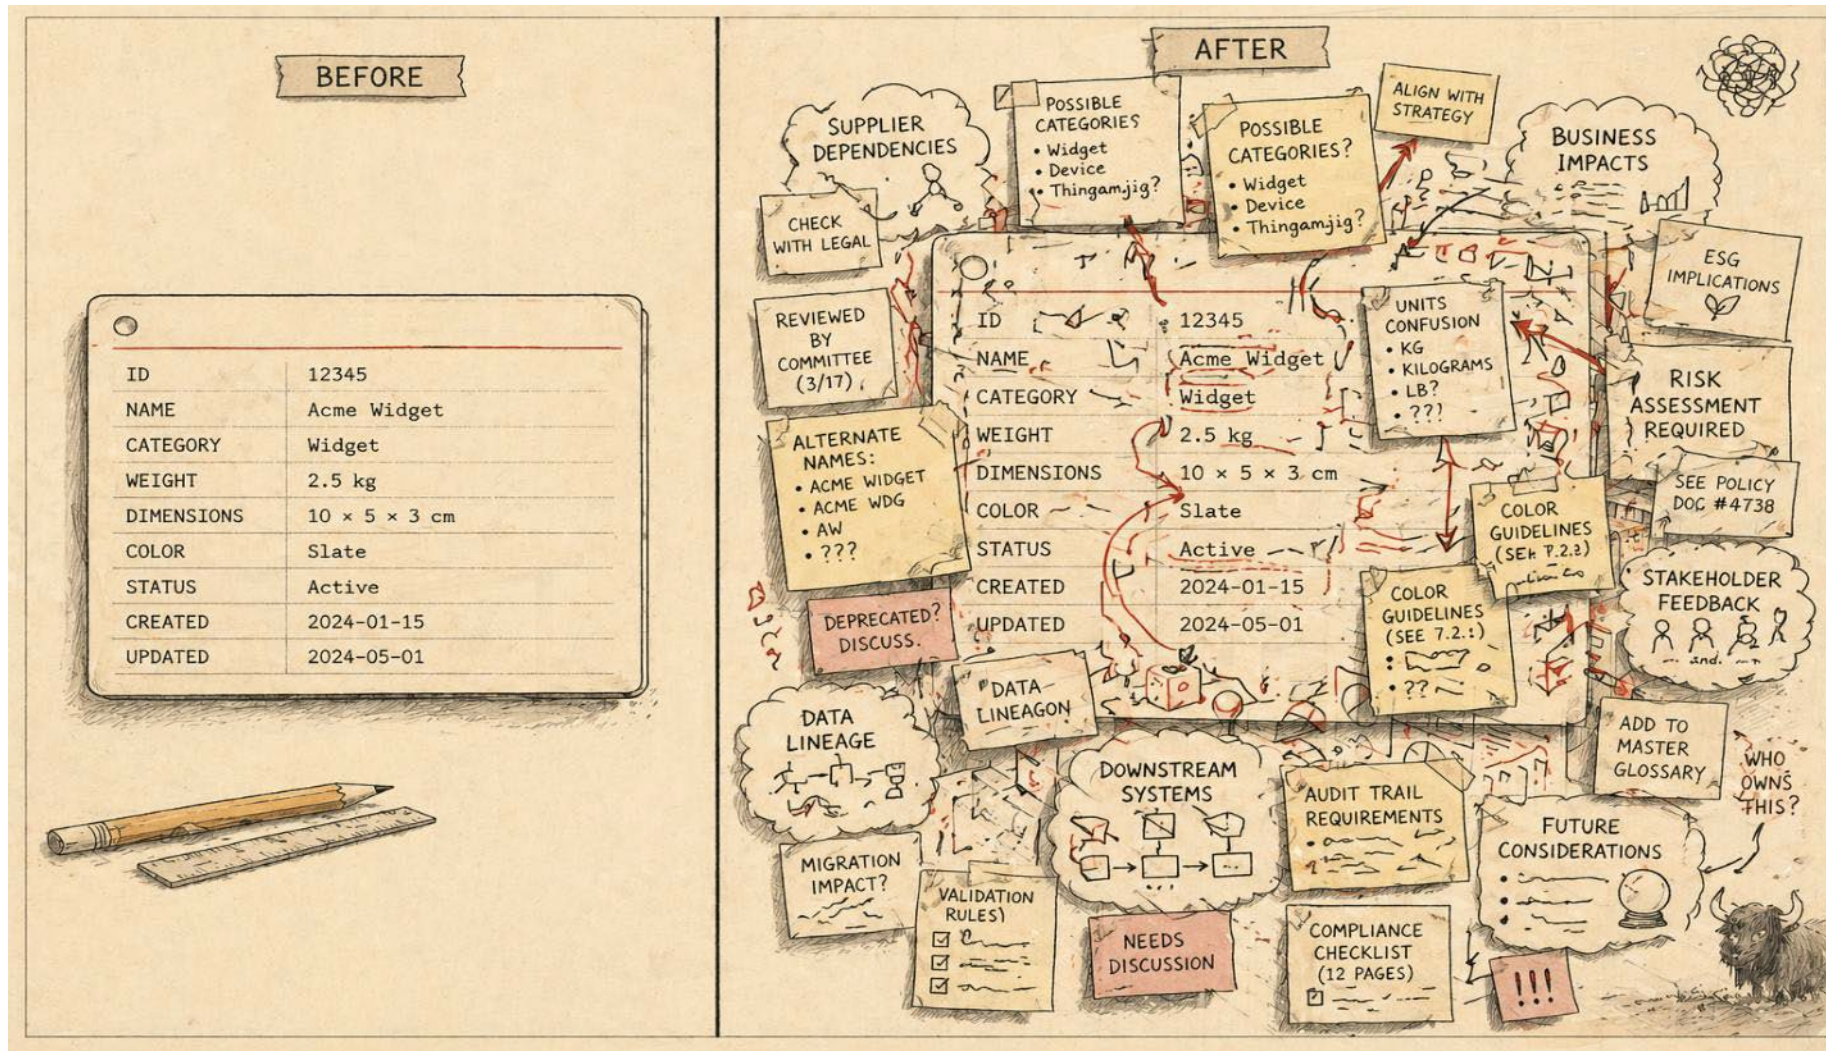 BEFORE
ID 12345
NAME Acme Widget
CATEGORY Widget
WEIGHT 2.5 kg
DIMENSIONS 10 × 5 × 3 cm
COLOR Slate
STATUS Active
CREATED 2024-01-15
UPDATED 2024-05-01
AFTER
SUPPLIER
DEPENDENCIES
POSSIBLE
CATEGORIES
• Widget
• Device
• Thingamjig?
POSSIBLE
CATEGORIES?
• Widget
• Device
• Thingamjig?
ALIGN WITH
STRATEGY
BUSINESS
IMPACTS
CHECK
WITH LEGAL
ESG
IMPLICATIONS
REVIEWED
BY
COMMITTEE
(3/17)
UNITS
CONFUSION
• KG
• KILOGRAMS
• LB?
• ???
RISK
ASSESSMENT
REQUIRED
ID 12345
NAME Acme Widget
CATEGORY Widget
WEIGHT 2.5 kg
DIMENSIONS 10 × 5 × 3 cm
COLOR Slate
STATUS Active
CREATED 2024-01-15
UPDATED 2024-05-01
ALTERNATE
NAMES:
• ACME WIDGET
• ACME WDG
• AW
• ???
SEE POLICY
DOC #4738
COLOR
GUIDELINES
COLOR
GUIDELINES
(SEE 7.2.:)
• ??
STAKEHOLDER
FEEDBACK
and.
DEPRECATED?
DISCUSS.
DATA
LINEAGON
DATA
LINEAGE
ADD TO
MASTER
GLOSSARY
WHO
OWNS
THIS?
DOWNSTREAM
SYSTEMS
AUDIT TRAIL
REQUIREMENTS
FUTURE
CONSIDERATIONS
MIGRATION
IMPACT?
VALIDATION
RULES)
NEEDS
DISCUSSION
COMPLIANCE
CHECKLIST
(12 PAGES)
!!!